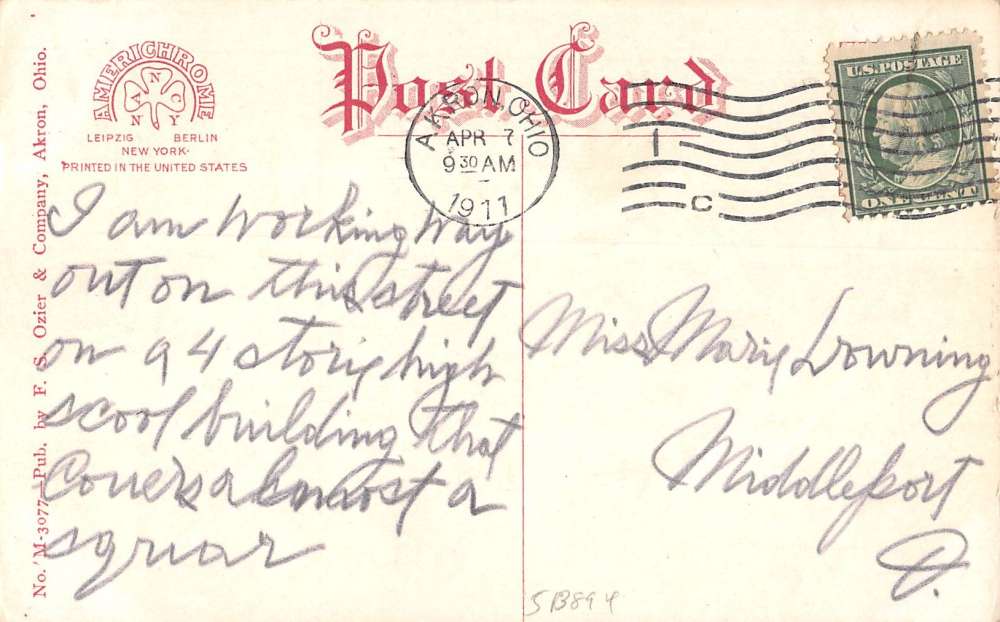 AMERICHROME
ANNY CO
LEIPZIG BERLIN
NEW YORK
PRINTED IN THE UNITED STATES
Post Card
AKRON, OHIO
APR 7
9 30 AM
1911
1
C
U.S. POSTAGE
ONE CENT
No. M-3077—Pub. by F. S. Ozier & Company, Akron, Ohio.
I am working way
out on this street
on a 4 story high
scool building that
Covers almost a
squar
Miss Mary Downing
Middleport
O.
5B894